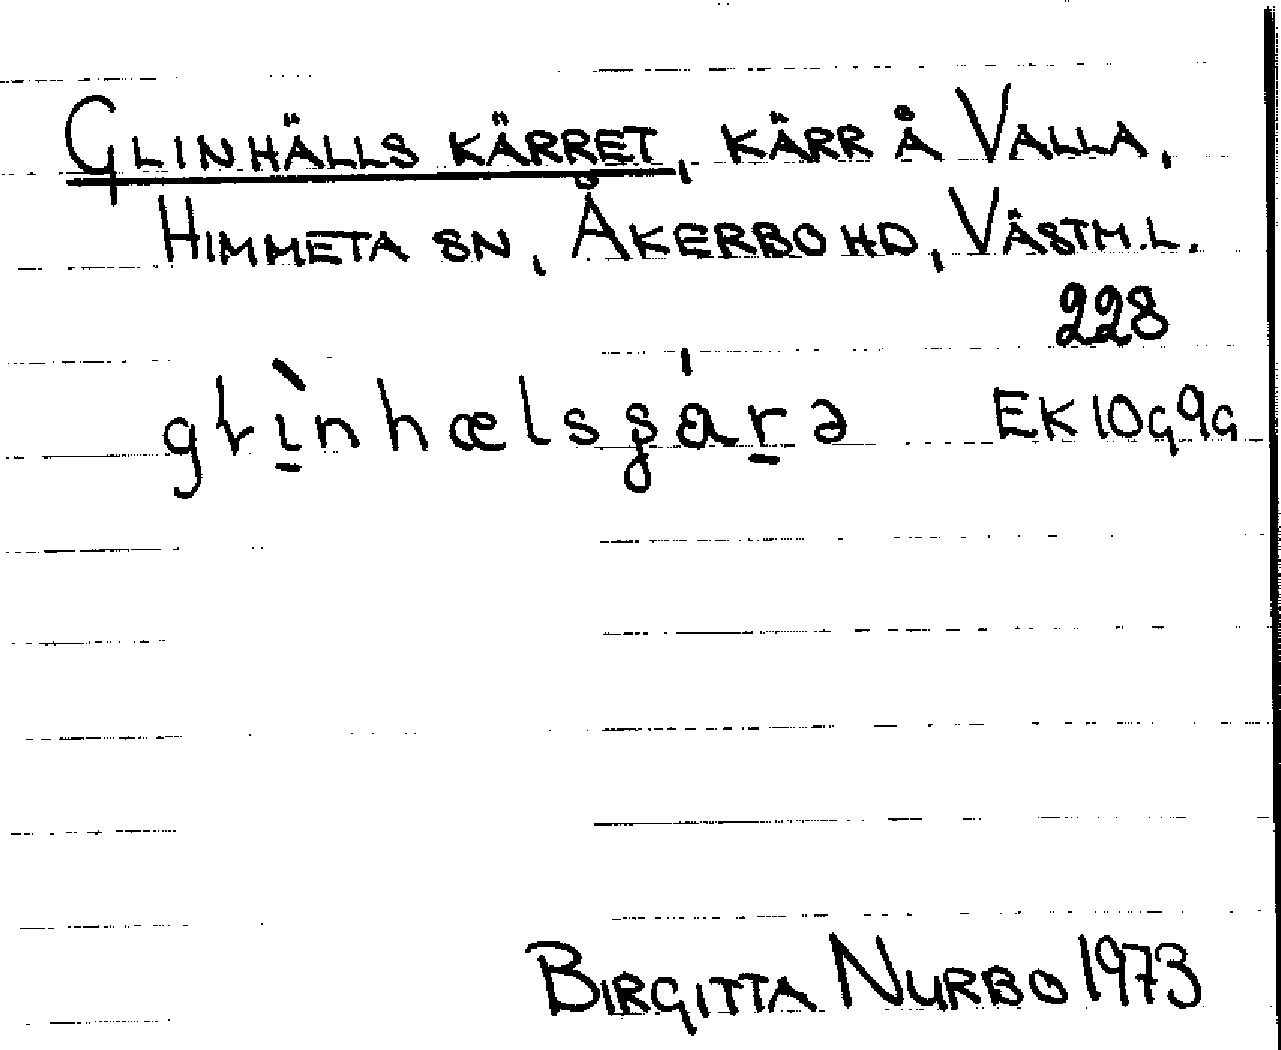 GLINHÄLLS KÄRRET, KÄRR Å VALLA,
HIMMETA SN, ÅKERBO HD, VÄSTM.L.
228
EK 10G9G
BIRGITTA NURBO 1973